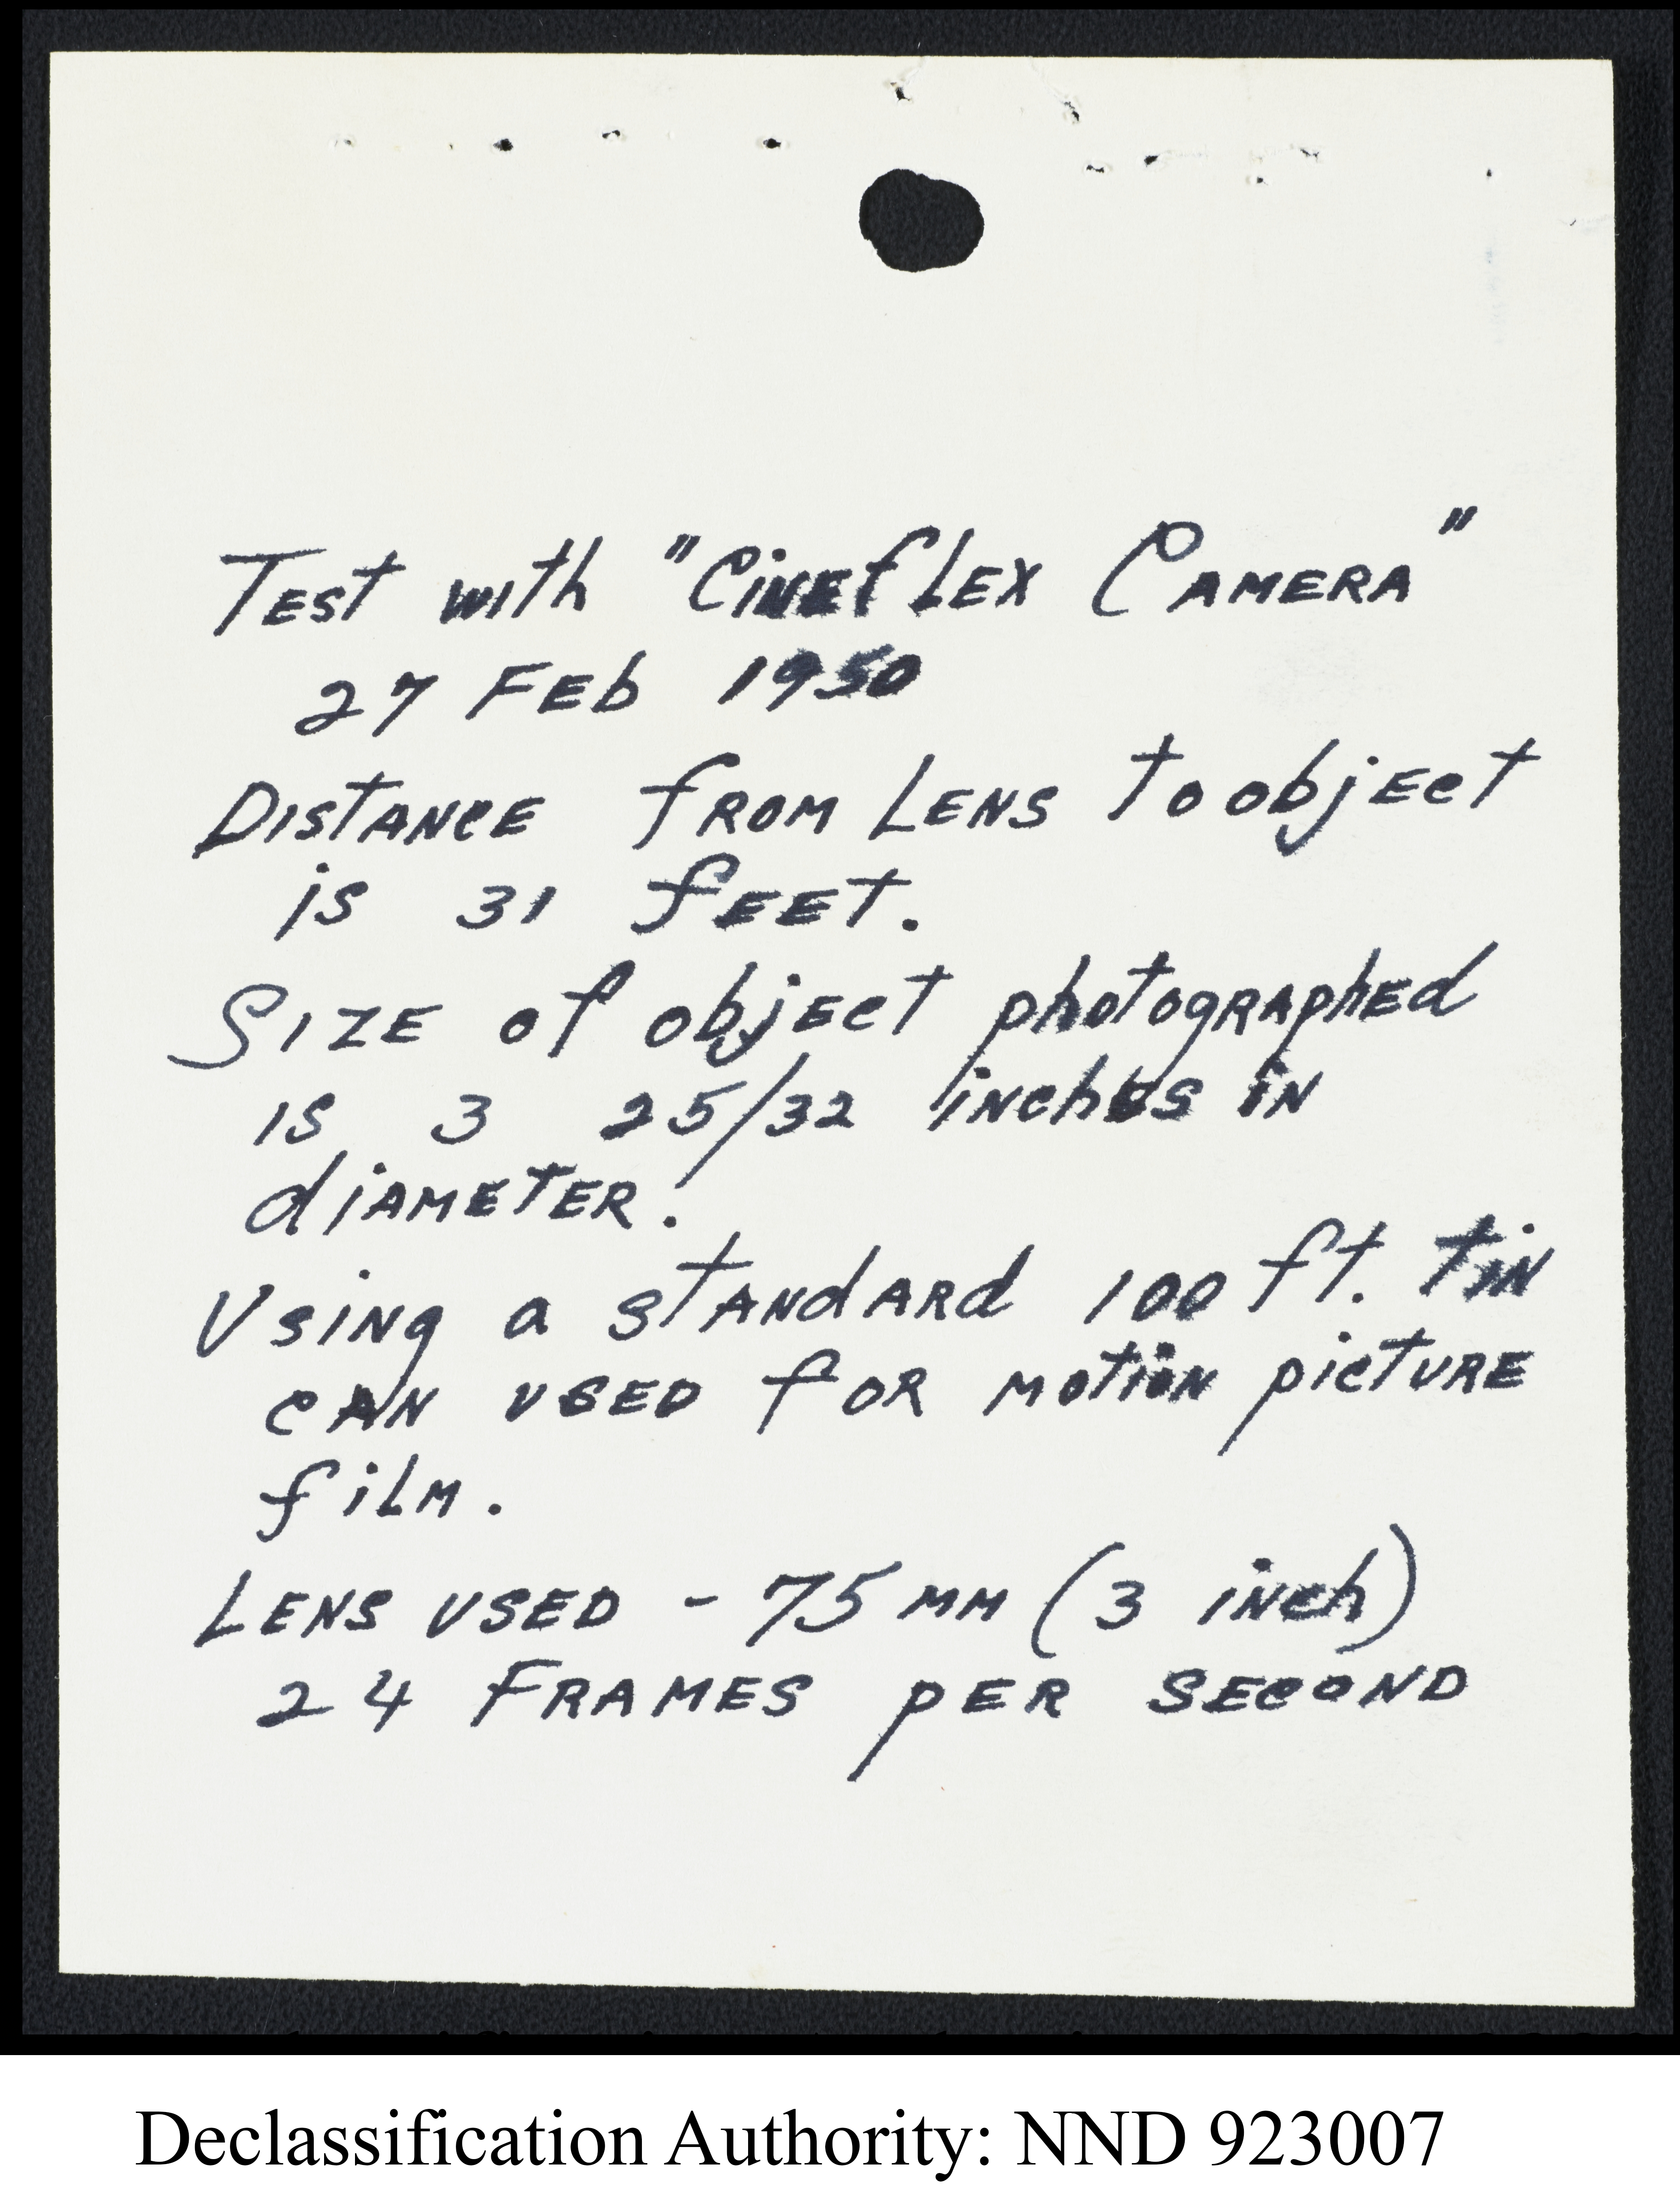 Test with "Cineflex Camera"
27 Feb 1950
Distance from Lens to object
is 31 feet.
Size of object photographed
is 3 25/32 inches in
diameter.
Using a standard 100 ft. tin
can used for motion picture
film.
Lens used - 75 mm (3 inch)
24 Frames per second
Declassification Authority: NND 923007